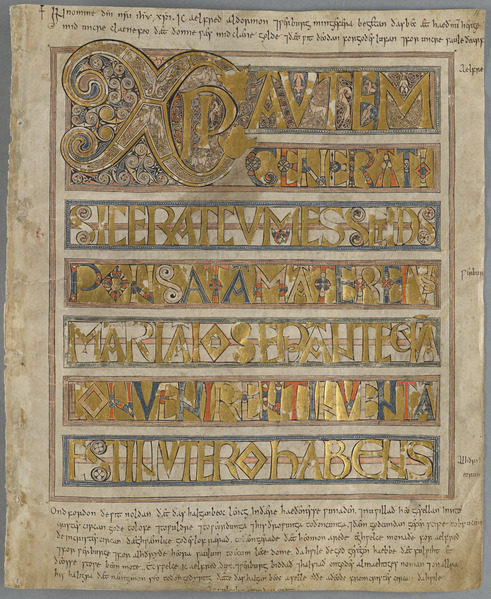 + In nomine dñi nr̄i ihu xpi. Ic aelfred aldormon ⁊ ƿerburg min gefera begetan ðas bec æt haeðnum herge
mid uncre claene feo ðæt ðonne ƿæs mid clæne golde ⁊ ðæt ƿit deodan for godes lufan ⁊ for uncre saule ðearfe
XPI AUTEM
Aelfre
GENERATI
SIC ERAT CUM ESSET DIS
PONSATA MATER EIUS
ƿerbur
MARIA IOSEPH ANTEQUA
CONUENIRENT INUENTA
EST IN UTERO HABENS
Alhðryð
eorum
Ond forðon ðe ƿit noldan ðæt ðas halgan beoc lencg in ðære haeðenesse ƿunaden ⁊ nu ƿillað heo gesellan inn to
cristes circan gode to lofe ⁊ to ƿuldre ⁊ to ƿeorðunga ⁊ his ðroƿunga to ðoncunga ⁊ ðæm godcundan geferscipe to brucenne
ðe in cristes circan dæghƿæmlice godes lof rærað to ðæm gerade ðæt heo mon arede eghƿelce monaðe for aelfred
⁊ for ƿerburge ⁊ for alhðryðe heora saulum to ecum lecedome ða hƿile ðe god gesegen haebbe ðæt fulƿiht æt
ðeosse stoƿe beon mote ec sƿelce ic aelfred dux ⁊ ƿerburg biddað ⁊ halsiað on godes almaehtiges noman ⁊ on allra
his haligra ðæt nænig mon seo to ðon gedyrstig ðætte ðas halgan beoc aselle oððe aðeode from cristes circan ða hƿile